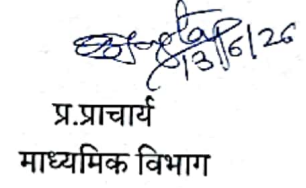 13/6/26
प्र.प्राचार्य
माध्यमिक विभाग